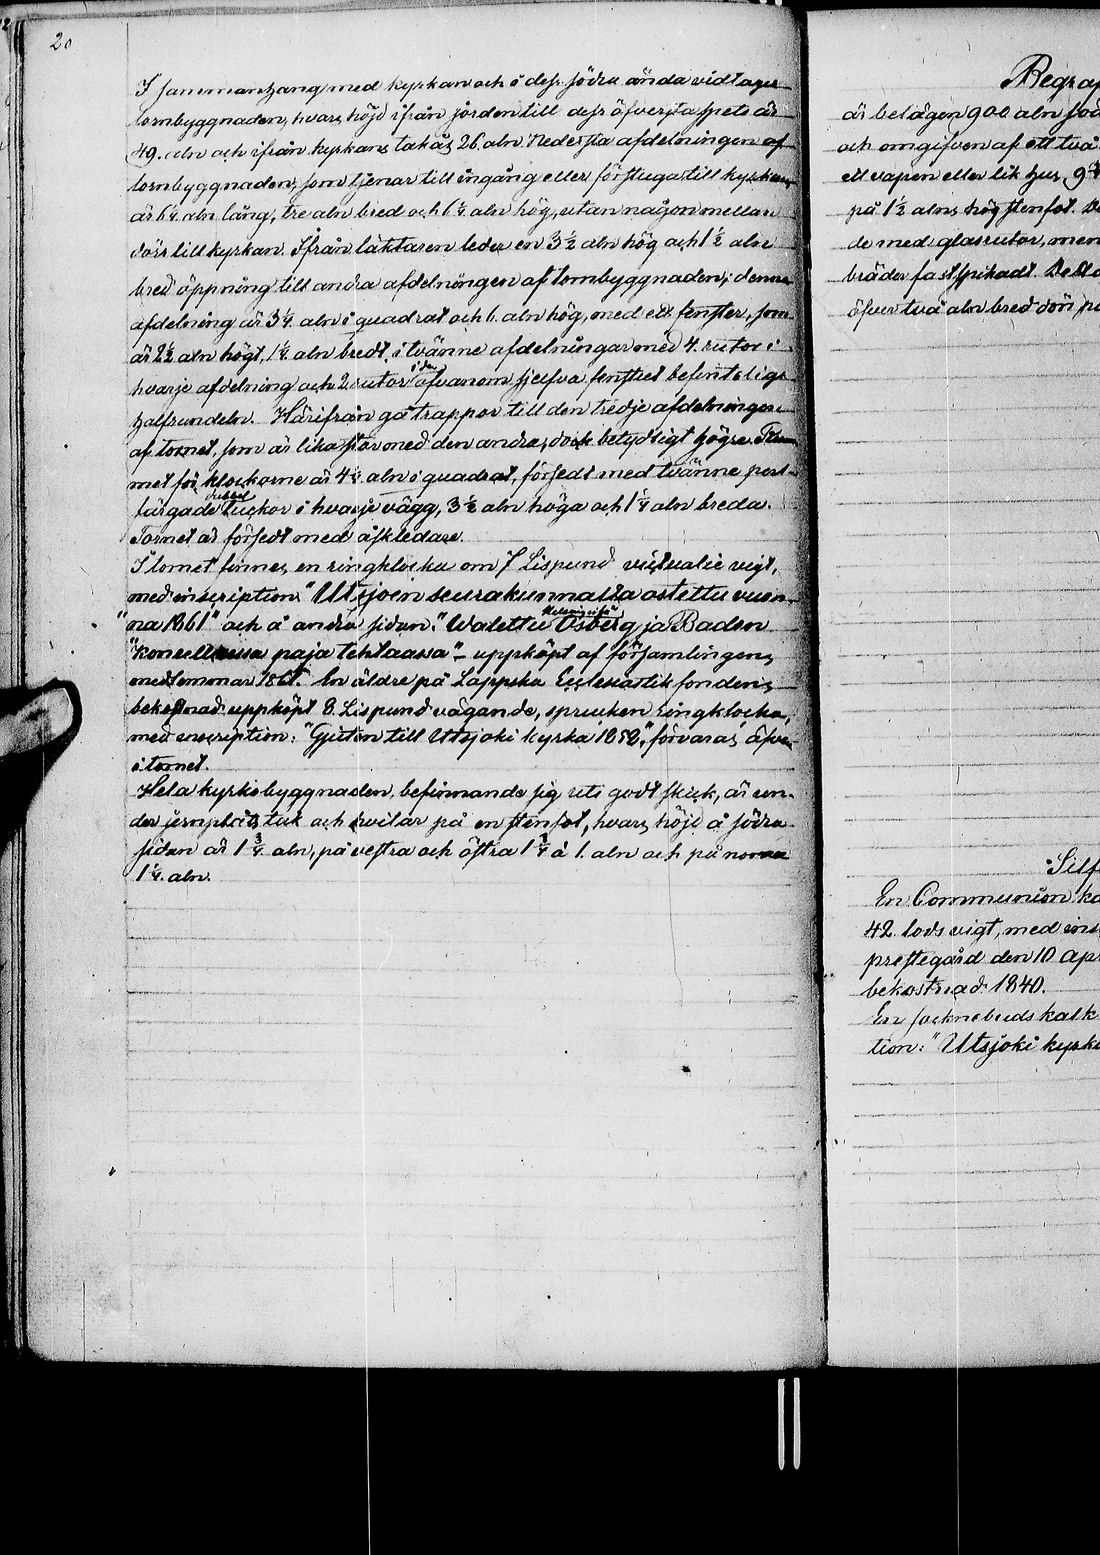 20
I sammanhang med kyrkan och i dess södra ända vidtager
tornbyggnaden, hvars höjd ifrån jorden till dess öfversta spets är
49. aln och ifrån kyrkans tak är 26. aln. Nedersta afdelningen af
tornbyggnaden, som tjenar till ingång eller förstuga till kyrkan,
är 6¼ aln lång, tre aln bred och 6¼ aln hög, utan någon mellan
dörr till kyrkan. Ifrån läktaren leder en 3½ aln hög och 1½ aln
bred öppning till andra afdelningen af tornbyggnaden; denna
afdelning är 3¼ aln i quadrat och 6. aln hög, med ett fenster, som
är 2½ aln högt, 1¼ aln bredt, i tvänne afdelningar med 4. rutor i
hvarje afdelning och 2. rutor i den ofvanom sjelfva fenstret befintliga
halfrundeln. Härifrån gå trappor till den tredje afdelningen
af tornet, som är lika stor med den andra, dock betydligt högre. Rum
met för klockorne är 4¼ aln i quadrat, försedt med tvänne perl-
färgade dubbel luckor i hvarje vägg, 3½ aln höga och 1¼ aln breda.
Tornet är försedt med åskledare.
I tornet finnes en ringklocka om 7 Lispund victualie vigt,
med inscription: "Utsjoen seurakunnalta ostettu vuon-
"na 1861" och å andra sidan: "Walettu Osberg ja Baden
"koneellisessa paja tehtaassa" - uppköpt af församlingens
medlemmar 1861. En äldre på Lappska Ecclesiastik fondens
bekostnad uppköpt 8. Lispund vägande, sprucken ringklocka,
med inscription: "Gjuten till Utsjoki kyrka 1852", förvaras äfven
i tornet.
Hela kyrkobyggnaden, befinnande sig uti godt skick, är un-
der jernplåts tak och hvilar på en stenfot, hvars höjd å södra
sidan är 1¾ aln, på vestra och östra 1¼ à 1. aln och på norra
1¼. aln.
Begrap
är belägen 900 aln söd
och omgifven af ett två
ett vapen eller lik hus, 9
på 1½ alns hög stenfot. De
de med glasrutor, men
bräder fastspikadt.
öfver två aln bred dörr, på
Silf
En Communion ka
42 lods vigt, med ins
prestegård den 10 Apr
bekostnad 1840.
En socknebuds kalk
tion: "Utsjoki kyrk